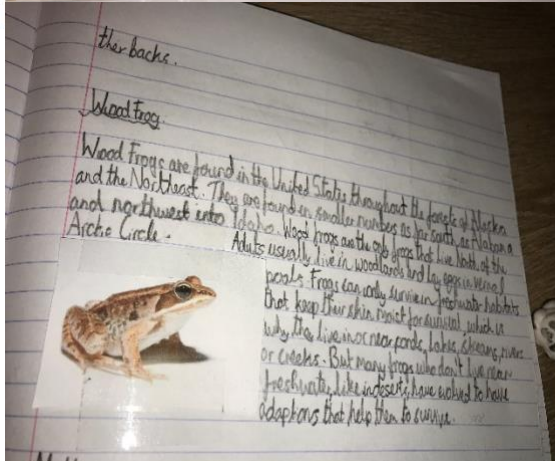 ther backs.
Wood Frog
Wood Frogs are found in the United States throughout the forests of Alaska
and the Northeast. They are found in smaller numbers as far south as Alabama
and northwest into Idaho. Wood frogs are the only frogs that live North of the
Arctic Circle. Adults usually live in woodlands and lay eggs in vernal
pools. Frogs can only survive in freshwater habitats
that keep their skin moist for survival, which is
why they live in or near ponds, lakes, streams, rivers
or creeks. But many frogs who don't live near
freshwater, like in deserts, have evolved to have
adaptions that help them to survive.